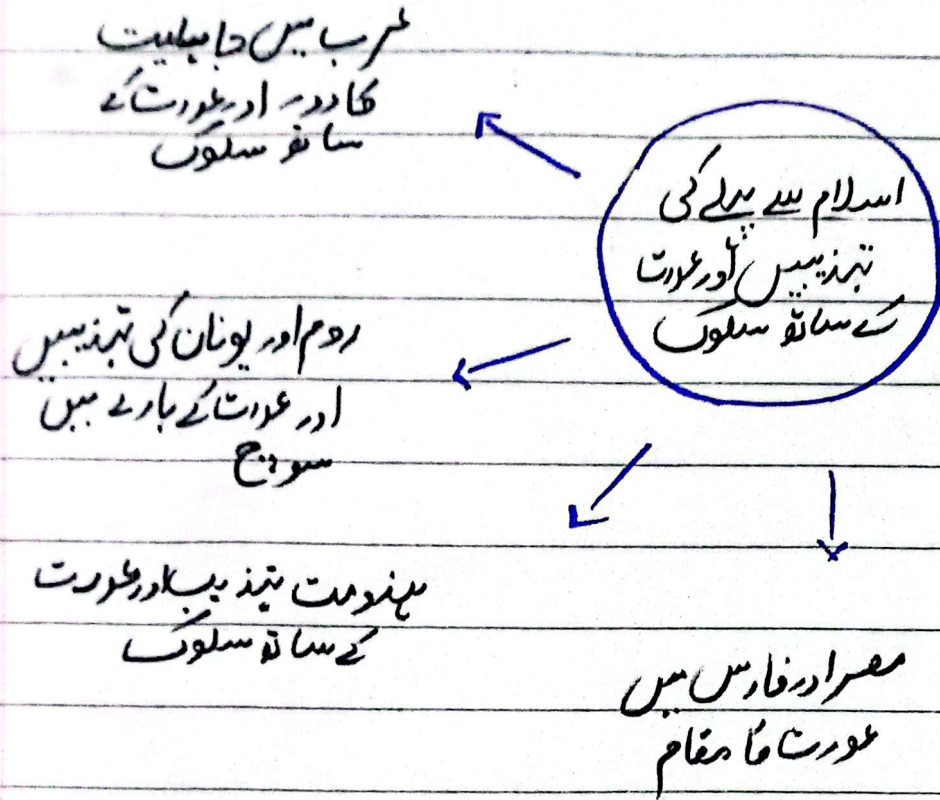 اسلام سے پہلے کی
تہذیبیں اور عورت
کے ساتھ سلوک
عرب میں جاہلیت
کا دور اور عورت کے
ساتھ سلوک
روم اور یونان کی تہذیبیں
اور عورت کے بارے میں
سوچ
ہندومت تہذیب اور عورت
کے ساتھ سلوک
مصر اور فارس میں
عورت کا مقام